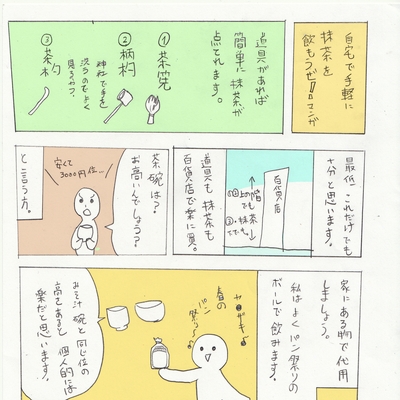 自宅で手軽に
抹茶を
飲もうぜ!マンガ
道具があれば
簡単に抹茶が
点てれます。
①茶筅
②柄杓
神社で手を
洗うのでよく
見るやつ。
③茶杓
最低これだけでも
十分と思います。
百貨店
抹茶
道具も抹茶も
百貨店で楽に買。
茶碗は?
お高いんでしょう?
安くて
3000円位…
と言う方。
家にある物で代用
しましょう。
私はよくパン祭りの
ボールで飲みます。
春の
パン
祭り
お味汁碗と同じ位の
高さあると個人的には
楽だと思います。